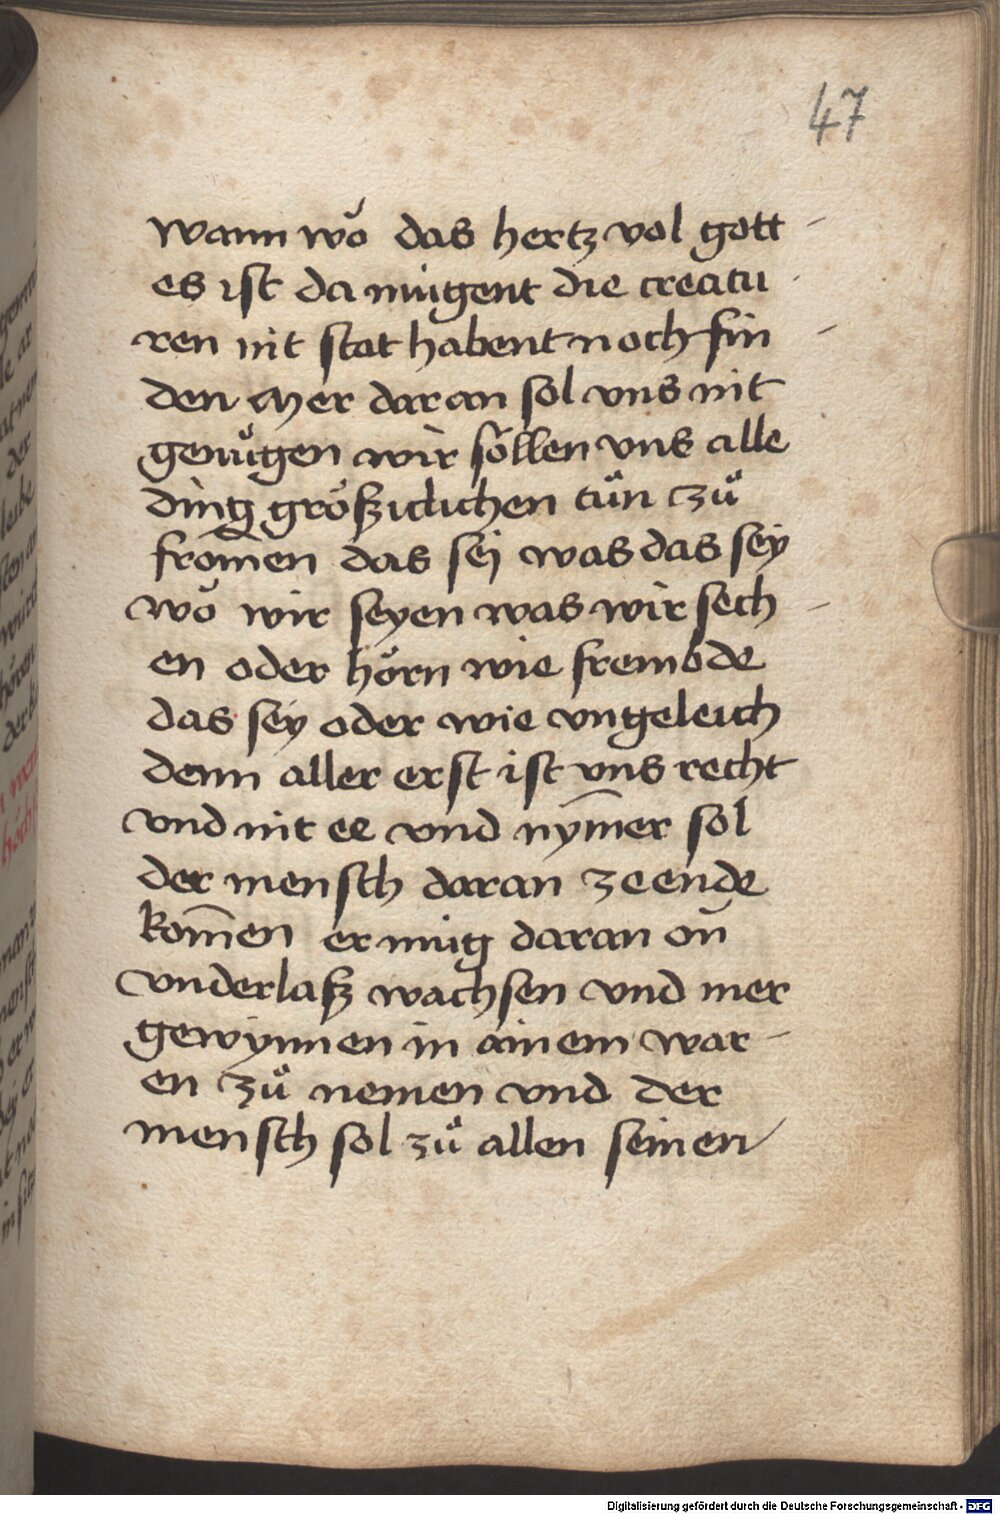 47
wann wŏ das hertz vol gott -
es ist da mügent die creatu -
ren nit stat habent noch fin -
den Mer daran sol vns nit
genůgen wir söllen vns alle
ding größzlichen tůn zů
from̄en das sej was das sey
wŏ wir seyen was wir sech -
en oder hŏrn wie frembde
das sey oder wie vngeleich
denn aller erst ist vns recht
vnd nit ee vnd nym̄er sol
der mensch daran ze ende
kom̄en er müg daran on̄
vnderlasz wachsen vnd mer
gewynnen in ainem war -
en zů nemen vnd der
mensch sol zů allen seinen
Digitalisierung gefördert durch die Deutsche Forschungsgemeinschaft - DFG